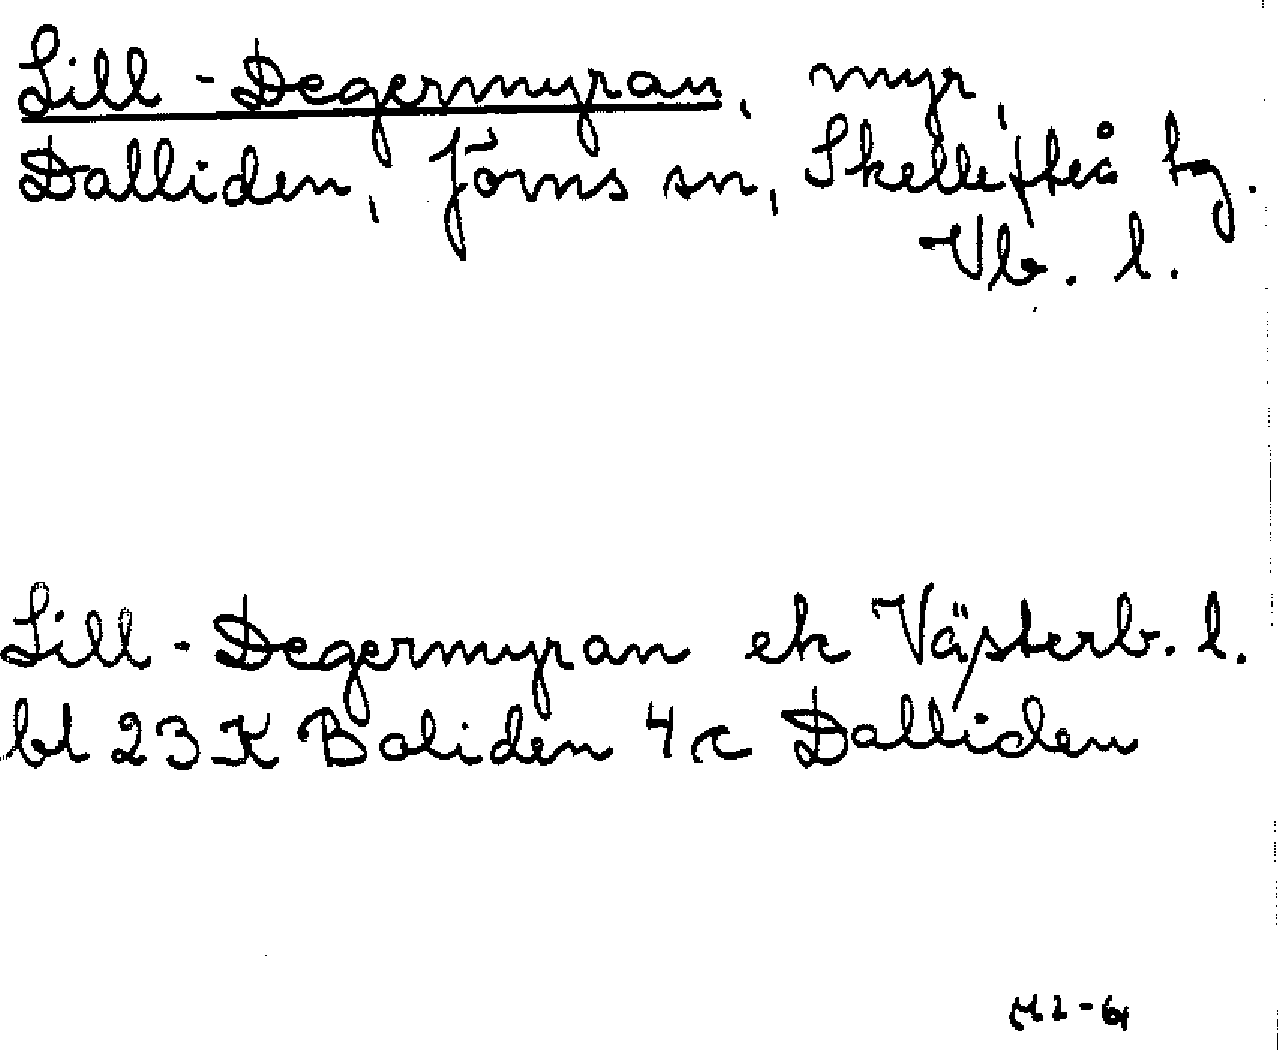 Lill-Degermyran, myr,
Dalliden, Jörns sn, Skellefteå tg.
Vb. l.
Lill-Degermyran ek Västerb. l.
bl 23 K Boliden 4 c Dalliden